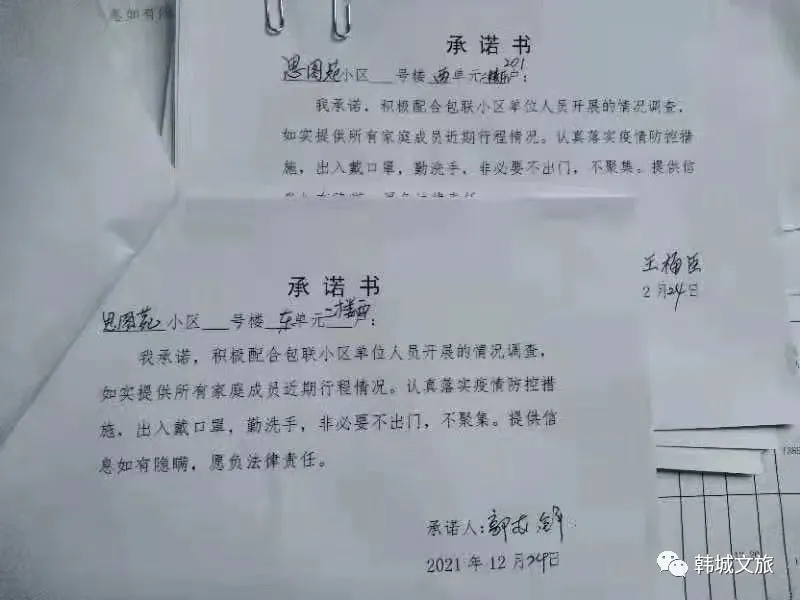 息如有隐
承诺书
思图苑小区___号楼 西单元 201户：
我承诺，积极配合包联小区单位人员开展的情况调查，
如实提供所有家庭成员近期行程情况。认真落实疫情防控措
施，出入戴口罩，勤洗手，非必要不出门，不聚集。提供信
王福臣
2月24日
承诺书
思图苑小区___号楼 东单元二楼西户：
我承诺，积极配合包联小区单位人员开展的情况调查，
如实提供所有家庭成员近期行程情况。认真落实疫情防控措
施，出入戴口罩，勤洗手，非必要不出门，不聚集。提供信
息如有隐瞒，愿负法律责任。
承诺人：郭
2021年12月24日
韩城文旅